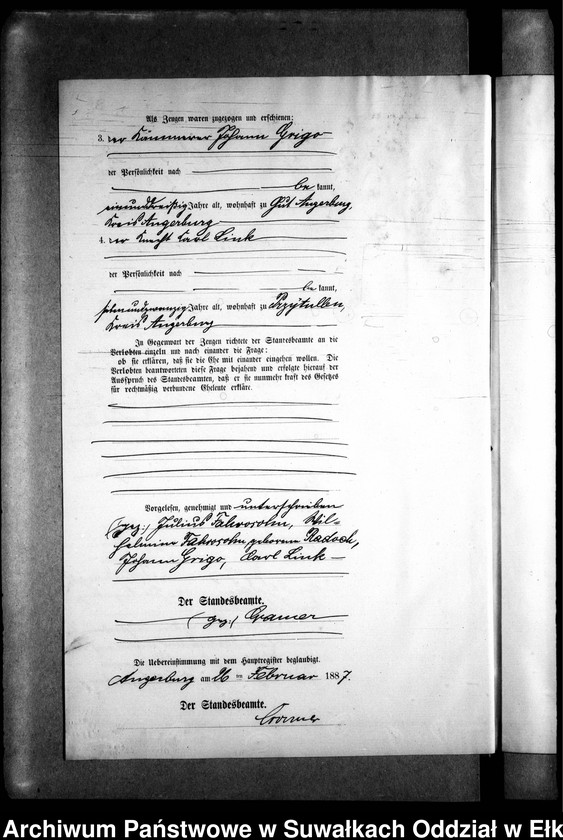 Als Zeugen waren zugezogen und erschienen:
3. der Kämmerer Johann Grigo
der Persönlichkeit nach
be kannt,
einunddreißig Jahre alt, wohnhaft zu Gut Angerburg,
Kreis Angerburg
4. der Knecht Carl Link
der Persönlichkeit nach
be kannt,
Jahre alt, wohnhaft zu Przytullen,
Kreis Angerburg
In Gegenwart der Zeugen richtete der Standesbeamte an die
Verlobten einzeln und nach einander die Frage:
ob sie erklären, daß sie die Ehe mit einander eingehen wollen. Die
Verlobten beantworteten diese Frage bejahend und erfolgte hierauf der
Ausspruch des Standesbeamten, daß er sie nunmehr kraft des Gesetzes
für rechtmäßig verbundene Eheleute erkläre.
Vorgelesen, genehmigt und unterschrieben
(gez.) Julius Fahrosohn, Wil-
helmine Fahrosohn, geborene
Johann Grigo, Carl Link
Der Standesbeamte.
(gez.) Cramer
Die Uebereinstimmung mit dem Hauptregister beglaubigt.
Angerburg am 26 ten Februar 1887.
Der Standesbeamte.
Cramer
Archiwum Państwowe w Suwałkach Oddział w Ełk